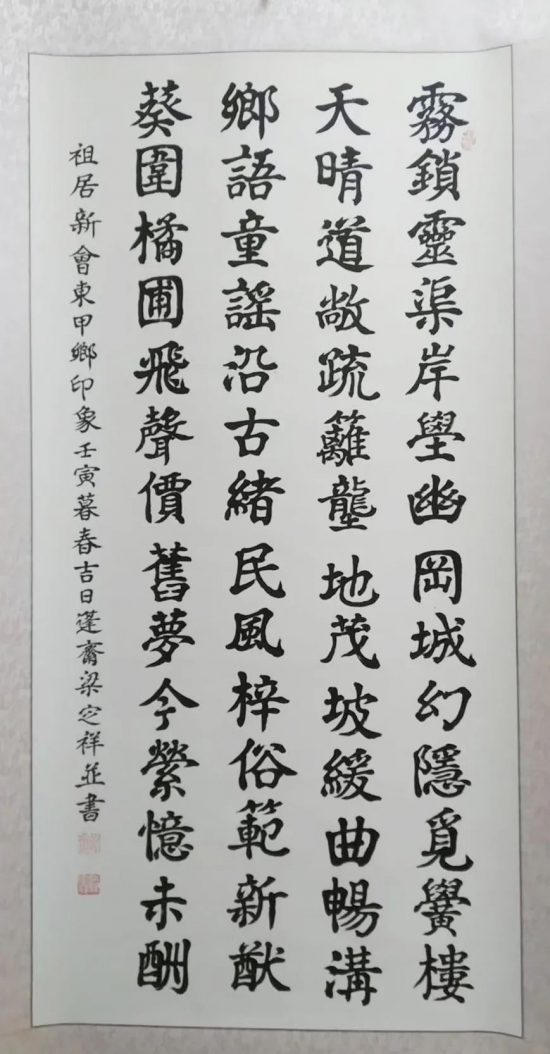 霧鎖靈渠岸壆幽岡城幻隱覓黌樓
天晴道敞疏籬壟地茂坡緩曲暢溝
鄉語童謠沿古緒民風梓俗範新猷
葵圍橘圃飛聲價舊夢今縈憶未酬
祖居新會東甲鄉印象壬寅暮春吉日蓬齋梁定祥並書